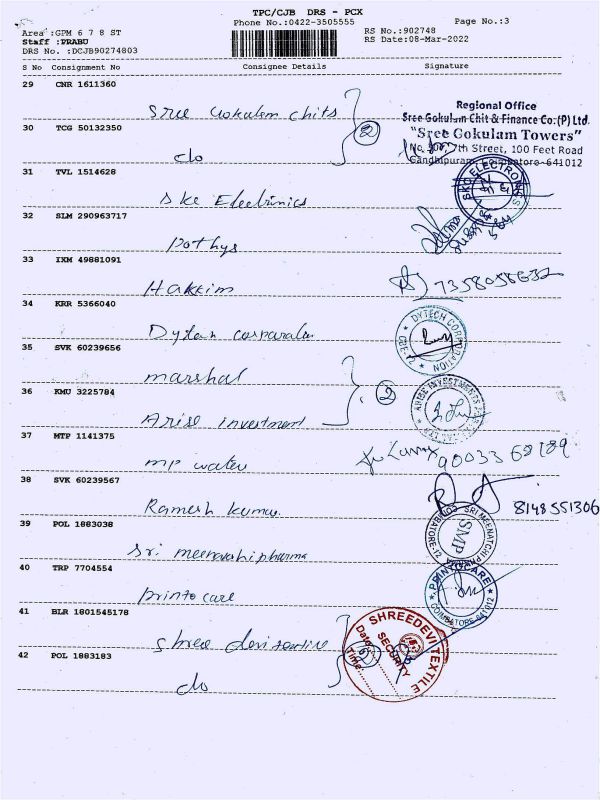 TPC/CJB DRS - PCX
Phone No.:0422-3505555
Page No.:3
Area :GPM 6 7 8 ST
RS No.:902748
Staff :PRABU
RS Date:08-Mar-2022
DRS No. :DCJB90274803
S No Consignment No Consignee Details Signature
29 CNR 1611360
Sree Gokulam chits
2
Regional Office
Sree Gokulam Chit & Finance Co.(P) Ltd.
"Sree Gokulam Towers"
30 TCG 50132350
7th Street, 100 Feet Road
do
Gandhipuram, Coimbatore-641012
31 TVL 1514628
Ske Electronics
SKO ELECTRONICS
32 SLM 290963717
Pothys
33 IXM 49881091
Hakkim
7358058632
34 KRR 5366040
Dytech corporation
DYTECH CORPORATION
CBE-12
35 SVK 60239656
marshal
2
36 KMU 3225784
Arise investment
ARISE INVESTMENTS
37 MTP 1141375
mp water
90033 68189
38 SVK 60239567
Ramesh kumar
8148551306
39 POL 1883038
Sri meenashi pharma
SRI MEENATCHI PHARMA
COIMBATORE-12
SMP
40 TRP 7704554
printo care
PRINTOCARE
COIMBATORE-641012
41 BLR 1801545178
Shree devi textile
SHREEDEVI TEXTILE
SECURITY
Date
Time
42 POL 1883183
do